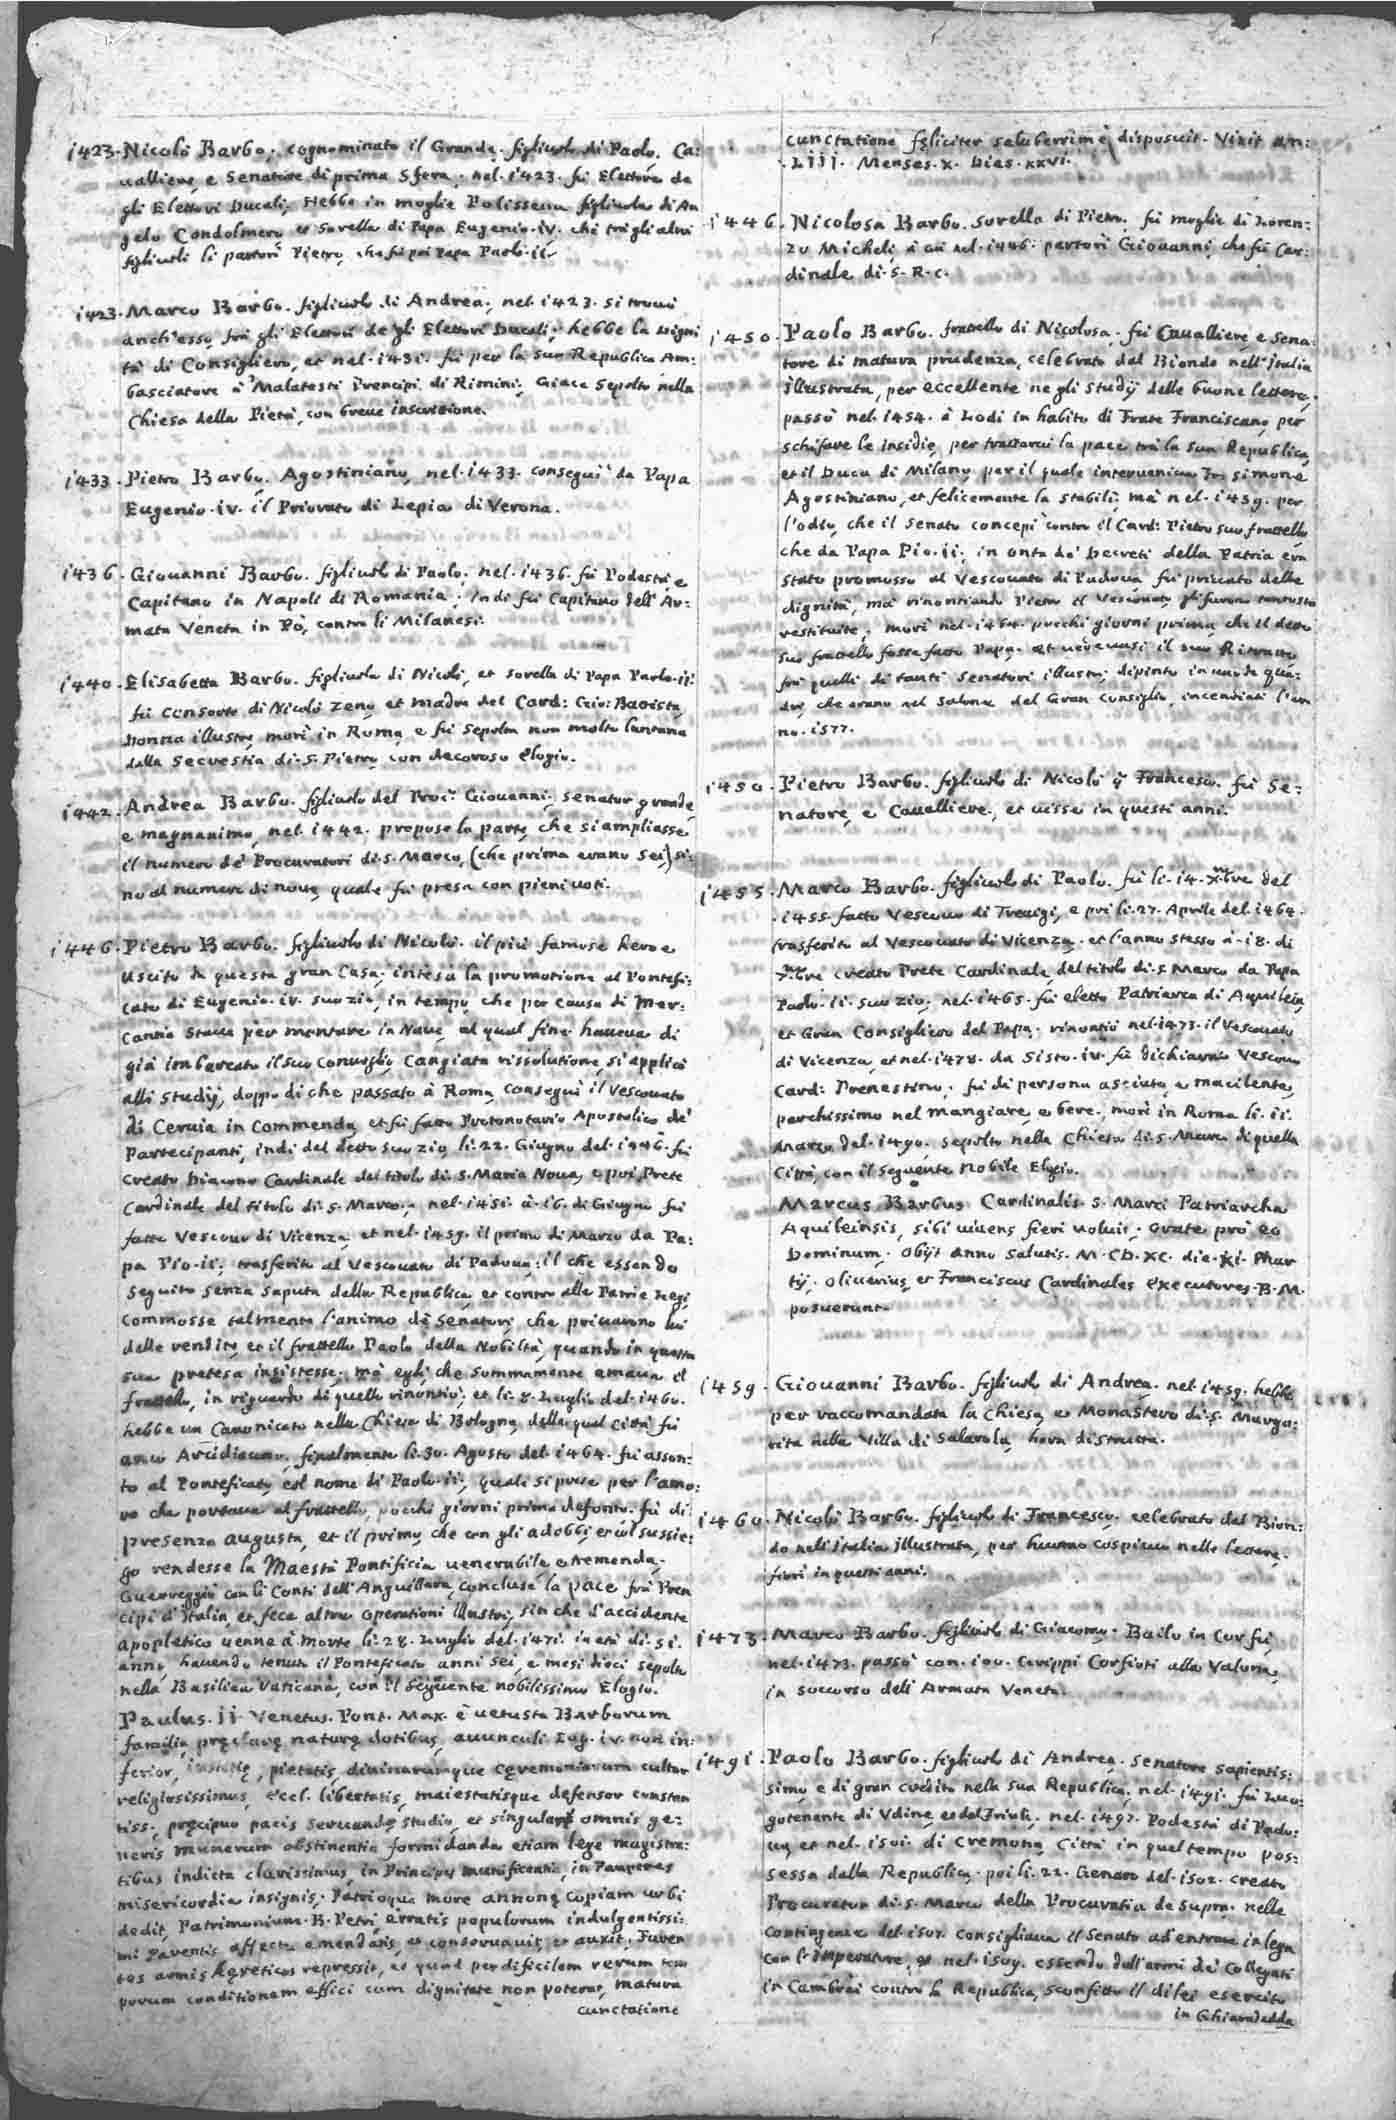 1423. Nicolò Barbo, cognominato il Grande, figliuolo di Paolo, Ca:
ualliere, e Senatore di prima Sfera, nel. 1423. fù Elettore de
gli Elettori Ducali, Hebbe in moglie Polissena figliuola di An
gelo Condolmero et Sorella di Papa Eugenio. iv. che trà gli altri
figliuoli li partorì Pietro, che fù poi Papa Paolo. ii.
1423. Marco Barbo. figliuolo di Andrea, nel. 1423. si trouò
anch'esso frà gli Elettori degli Elettori Ducali, hebbe la digni
tà di Consigliero, et nel. 1431. fù per la sua Republica Am:
basciatore à Malatesti Prencipi di Rimini, Giace Sepolto nella
Chiesa della Pietà, con breue inscrittione.
1433. Pietro Barbo. Agostiniano, nel. 1433. conseguì da Papa
Eugenio. iv. il Priorato di Lepia di Verona.
1436. Giouanni Barbo. figliuolo di Paolo. nel. 1436. fù Podestà, e
Capitano in Napoli di Romania, indi fù Capitano dell'Ar:
mata Veneta in Pò, contro li Milanesi.
1440. Elisabetta Barbo. figliuola di Nicolò, et sorella di Papa Paolo. ii.
fù Consorte di Nicolò Zeno, et madre del Card: Gio: Battista,
Donna illustre, morì in Roma, e fù sepolta non molto lontana
dalla Secrestia di. S. Pietro, con decoroso Elogio.
1442. Andrea Barbo. figliuolo del Proc.r Giouanni, senator grande
e magnanimo, nel. 1442. propose la parte, che si ampliasse
il numero de' Procuratori di. S. Marco, (che prima erano Sei,) si:
no al numero di noue, quale fù presa con pieni uoti.
1446. Pietro Barbo. figliuolo di Nicolò. il più famoso heroe
uscito da questa gran Casa, intesa la promotione al Pontefi:
cato di Eugenio. iv. suo zio, in tempo, che per causa di Mer:
cantia staua per montare in Naue, al qual fine haueua di
già imbarcato il suo Conuoglio, Cangiata rissolutione, si applicò
alli Studij, doppo di che passato à Roma, conseguì il Vescouato
di Ceruia in Commenda, et fù fatto Protonotario Apostolico de'
Partecipanti, indi del detto suo zio, li. 22. Giugno del. 1446. fù
creato Diacono Cardinale del titolo di. S. Maria Noua, e poi Prete
Cardinale del titolo di. S. Marco, nel. 1451. à. 16. di Giugno fù
fatto Vescouo di Vicenza, et nel. 1459. il primo di Marzo da Pa:
pa Pio. ii. trasferito al Vescouato di Padoua; il che essendo
seguito senza saputa della Republica, et contro alle Patrie Leggi
Commosse talmente l'animo de' Senatori, che priuarono lui
delle rendite, et il fratello Paolo della Nobiltà, quando in questa
sua pretesa insistesse, mà egli, che sommamente amaua il
fratello, in riguardo di quello rinontiò, et li. 8. Luglio del. 1460.
hebbe un Canonicato nella Chiesa di Bologna, della qual Città fù
anco Arcidiacono, finalmente li. 30. Agosto del. 1464. fù asson:
to al Pontificato col nome di Paolo. ii., quale si prese per l'amo:
re che portaua al fratello, pochi giorni prima defonto. fù di
presenza augusta, et il primo, che con gli adobbi, et col sussie:
go rendesse la Maestà Pontificia uenerabile, e tremenda.
Guerreggiò con li Conti dell'Anguillara, concluse la pace frà Pren
cipi d'Italia, et fece altre operationi illustri, sin che d'accidente
apopletico uenne à morte li. 28. Luglio del. 1471. in età di. 51.
anni, hauendo tenuto il Ponteficato anni sei, e mesi dieci sepolto
nella Basilica Vaticana, con il seguente nobilissimo Elogio.
Paulus. ii. Venetus. Pont. Max. è uetusta Barborum
familia, pręclarę naturę dotibus, auunculi Eug. iv. non in:
ferior, iustitię, pietatis, diuinarumque cęremoniarum cultor
religiosissimus, eccl. libertatis, maiestatisque defensor constan
tiss. pręcipuo pacis seruandę studio, et singulari omnis ge:
neris munerum abstinentia formidanda etiam lege magistra:
tibus indicta clarissimus, in Principes munificentia, in Pauperes
misericordia insignis, Patrioque more annonę copiam urbi
dedit, Patrimonium. B. Petri erratis populorum indulgentissi:
mi parentis affectu emendatis, et conseruauit, et auxit, Turen
tes armis hęreticos repressit, et quod per dificilem rerum tem
porum conditionem effici cum dignitate non poterat, matura
cunctatione
cunctatione feliciter saluberrimè disposuit. Vixit an:
. Liii. Menses. x. Dies. xxvi.
1446. Nicolosa Barbo. Sorella di Pietro. fù moglie di Loren:
zo Micheli, à cui nel. 1446. partorì Giouanni, che fù Car:
dinale di. S. R. C.
1450. Paolo Barbo. fratello di Nicolosa, fù Caualliere e Sena:
tore di matura prudenza, celebrato dal Biondo nell'Italia
illustrata, per eccellente negli studij delle buone lettere,
passò nel. 1454. à Lodi in habito di Frate Franciscano, per
schifare le insidie, per trattarui la pace trà la sua Republica,
et il Duca di Milano, per il quale interueniua Fra Simone
Agostiniano, et felicemente la stabilì, mà nel. 1459. per
l'odio, che il Senato concepì contro il Card: Pietro suo fratello
che da Papa Pio. ii. in onta de' Decreti della Patria era
stato promosso al Vescouato di Padoua, fù priuato delle
dignità, mà rinontiando Pietro il Vescouato, gli furon tantosto
restituite, morì nel. 1464. pochi giorni prima, che il detto
suo fratello fosse fatto Papa. et uedeuasi il suo Ritratto
frà quelli di tanti Senatori illustri dipinto in uno de qua:
dri, che erano nel Salone del Gran Consiglio, incendiati l'an
no. 1577.
1450. Pietro Barbo. figliuolo di Nicolò q. Francesco. fù Se:
natore, e Caualliere, et uisse in questi anni.
1455. Marco Barbo. figliuolo di Paolo. fù li. 14. Xmbre del
. 1455. fatto Vescouo di Treuigi, e poi li. 27. Aprile del. 1464.
trasferito al Vescouato di Vicenza. et l'anno stesso à. 18. di
 creato Prete Cardinale, del titolo di. S. Marco da Papa
Paolo. ii. suo zio, nel. 1465. fù eletto Patriarca di Aquileia,
et Gran Consigliero del Papa, rinontiò nel. 1473. il Vescouato
di Vicenza, et nel. 1478. da Sisto. iv. fù dichiarato Vescouo
Card: Prenestino. fù di persona asciuta, e macilente,
parchissimo nel mangiare, e bere. morì in Roma li. ii.
Marzo del. 1490. sepolto nella Chiesa di. S. Marco di quella
Città, con il seguente Nobile Elogio.
Marcus Barbus Cardinalis. S. Marci Patriarcha
Aquileiensis, sibi uiuens fieri uoluit, orate pro eo
Dominum. Obijt anno salutis. M. CD. XC. die. xi. Mar
tij. Oliuerius, et Franciscus Cardinales executores. B. M.
posuerunt.
1459. Giouanni Barbo. figliuolo di Andrea. nel. 1459. hebbe
per raccomandata la Chiesa, et Monastero di. S. Marga:
rita nella Villa di Salarola, hora distrutta.
1460. Nicolò Barbo. figliuolo di Francesco, celebrato dal Bion:
do nell'Italia illustrata, per huomo cospicuo nelle lettere,
fiorì in questi anni.
1473. Marco Barbo. figliuolo di Giacomo. Bailo in Corfù,
nel. 1473. passò con. 100. Grippi Corfioti alla Valona,
in soccorso dell'Armata Veneta.
1491. Paolo Barbo. figliuolo di Andrea. Senatore sapientis:
simo, e di gran credito nella sua Republica, nel. 1491. fù Luo:
gotenente di Vdine, et del Friuli, nel. 1497. Podestà di Pado:
ua, et nel. 1501. di Cremona, Città in quel tempo pos:
sessa dalla Republica, poi li. 22. Genaro del. 1502. creato
Procurator di. S. Marco della Procuratia de Supra. nelle
contingenze del. 1507. consigliaua il Senato ad entrare in lega
con l'Imperatore, et nel. 1509. essendo dall'armi dei Collegati
in Cambrai contro la Republica, sconfitto il di lei esercito
in Ghiaradadda